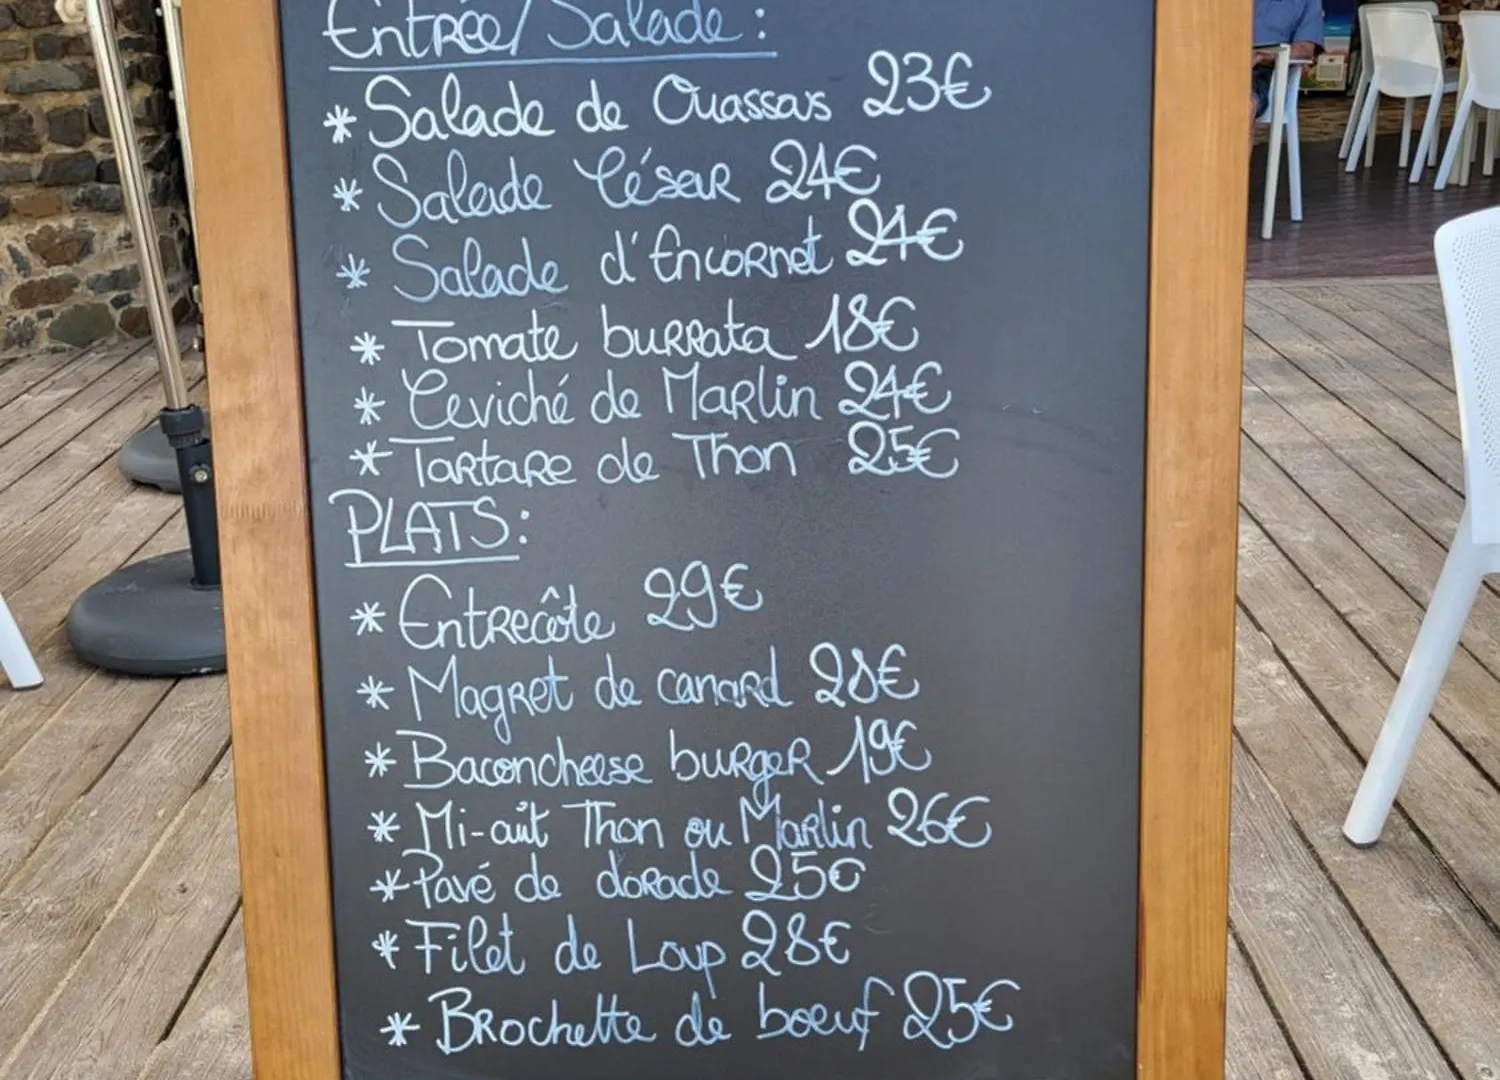 Entrée/Salade :
* Salade de Ouassous 23€
* Salade César 24€
* Salade d'Encornet 24€
* Tomate burrata 18€
* Ceviché de Marlin 24€
* Tartare de Thon 25€
PLATS:
* Entrecôte 29€
* Magret de canard 28€
* Baconcheese burger 19€
* Mi-cuit Thon ou Marlin 26€
* Pavé de dorade 25€
* Filet de Loup 28€
* Brochette de boeuf 25€